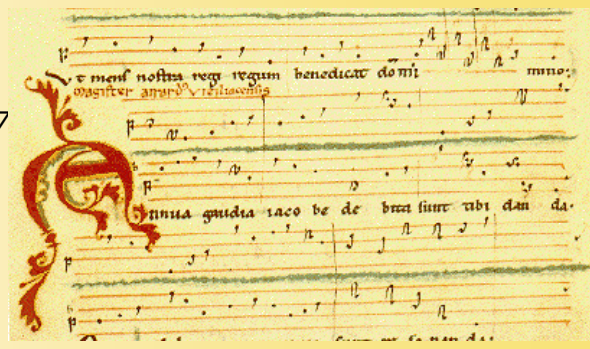 Vt mens nostra regi regum benedicat domi mino:
magister airard' viziliacensis
Annua gaudia iaco be de bita sunt tibi dan da.